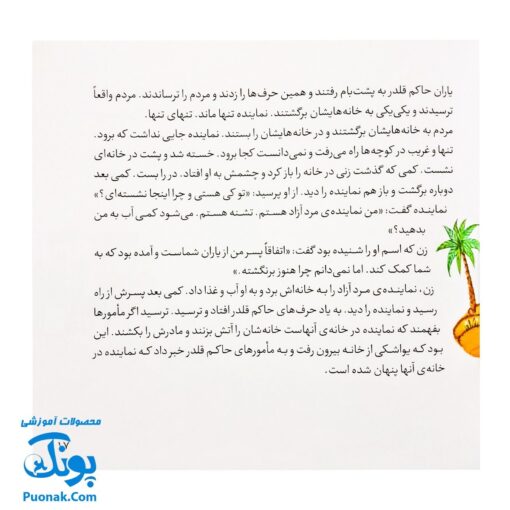 یاران حاکم قلدر به پشت‌بام رفتند و همین حرف‌ها را زدند و مردم را ترساندند. مردم واقعاً
ترسیدند و یکی‌یکی به خانه‌هایشان برگشتند. نماینده تنها ماند. تنهای تنها.
مردم به خانه‌هایشان برگشتند و در خانه‌هایشان را بستند. نماینده جایی نداشت که برود.
تنها و غریب در کوچه‌ها راه می‌رفت و نمی‌دانست کجا برود. خسته شد و پشت در خانه‌ای
نشست. کمی که گذشت زنی در خانه را باز کرد و چشمش به او افتاد. در را بست. کمی بعد
دوباره برگشت و باز هم نماینده را دید. از او پرسید: «تو کی هستی و چرا اینجا نشسته‌ای؟»
نماینده گفت: «من نماینده‌ی مرد آزاد هستم. تشنه هستم. می‌شود کمی آب به من
بدهید؟»
زن که اسم او را شنیده بود گفت: «اتفاقاً پسر من از یاران شماست و آمده بود که به
شما کمک کند. اما نمی‌دانم چرا هنوز برنگشته.»
زن، نماینده‌ی مرد آزاد را به خانه‌اش برد و به او آب و غذا داد. کمی بعد پسرش از راه
رسید و نماینده را دید. به یاد حرف‌های حاکم قلدر افتاد و ترسید. ترسید اگر مأمورها
بفهمند که نماینده در خانه‌ی آنهاست خانه‌شان را آتش بزنند و مادرش را بکشند. این
بود که یواشکی از خانه بیرون رفت و به مأمورهای حاکم قلدر خبر داد که نماینده در
خانه‌ی آنها پنهان شده است.
محصولات آموزشی
۱۷
پونک
Puonak.Com